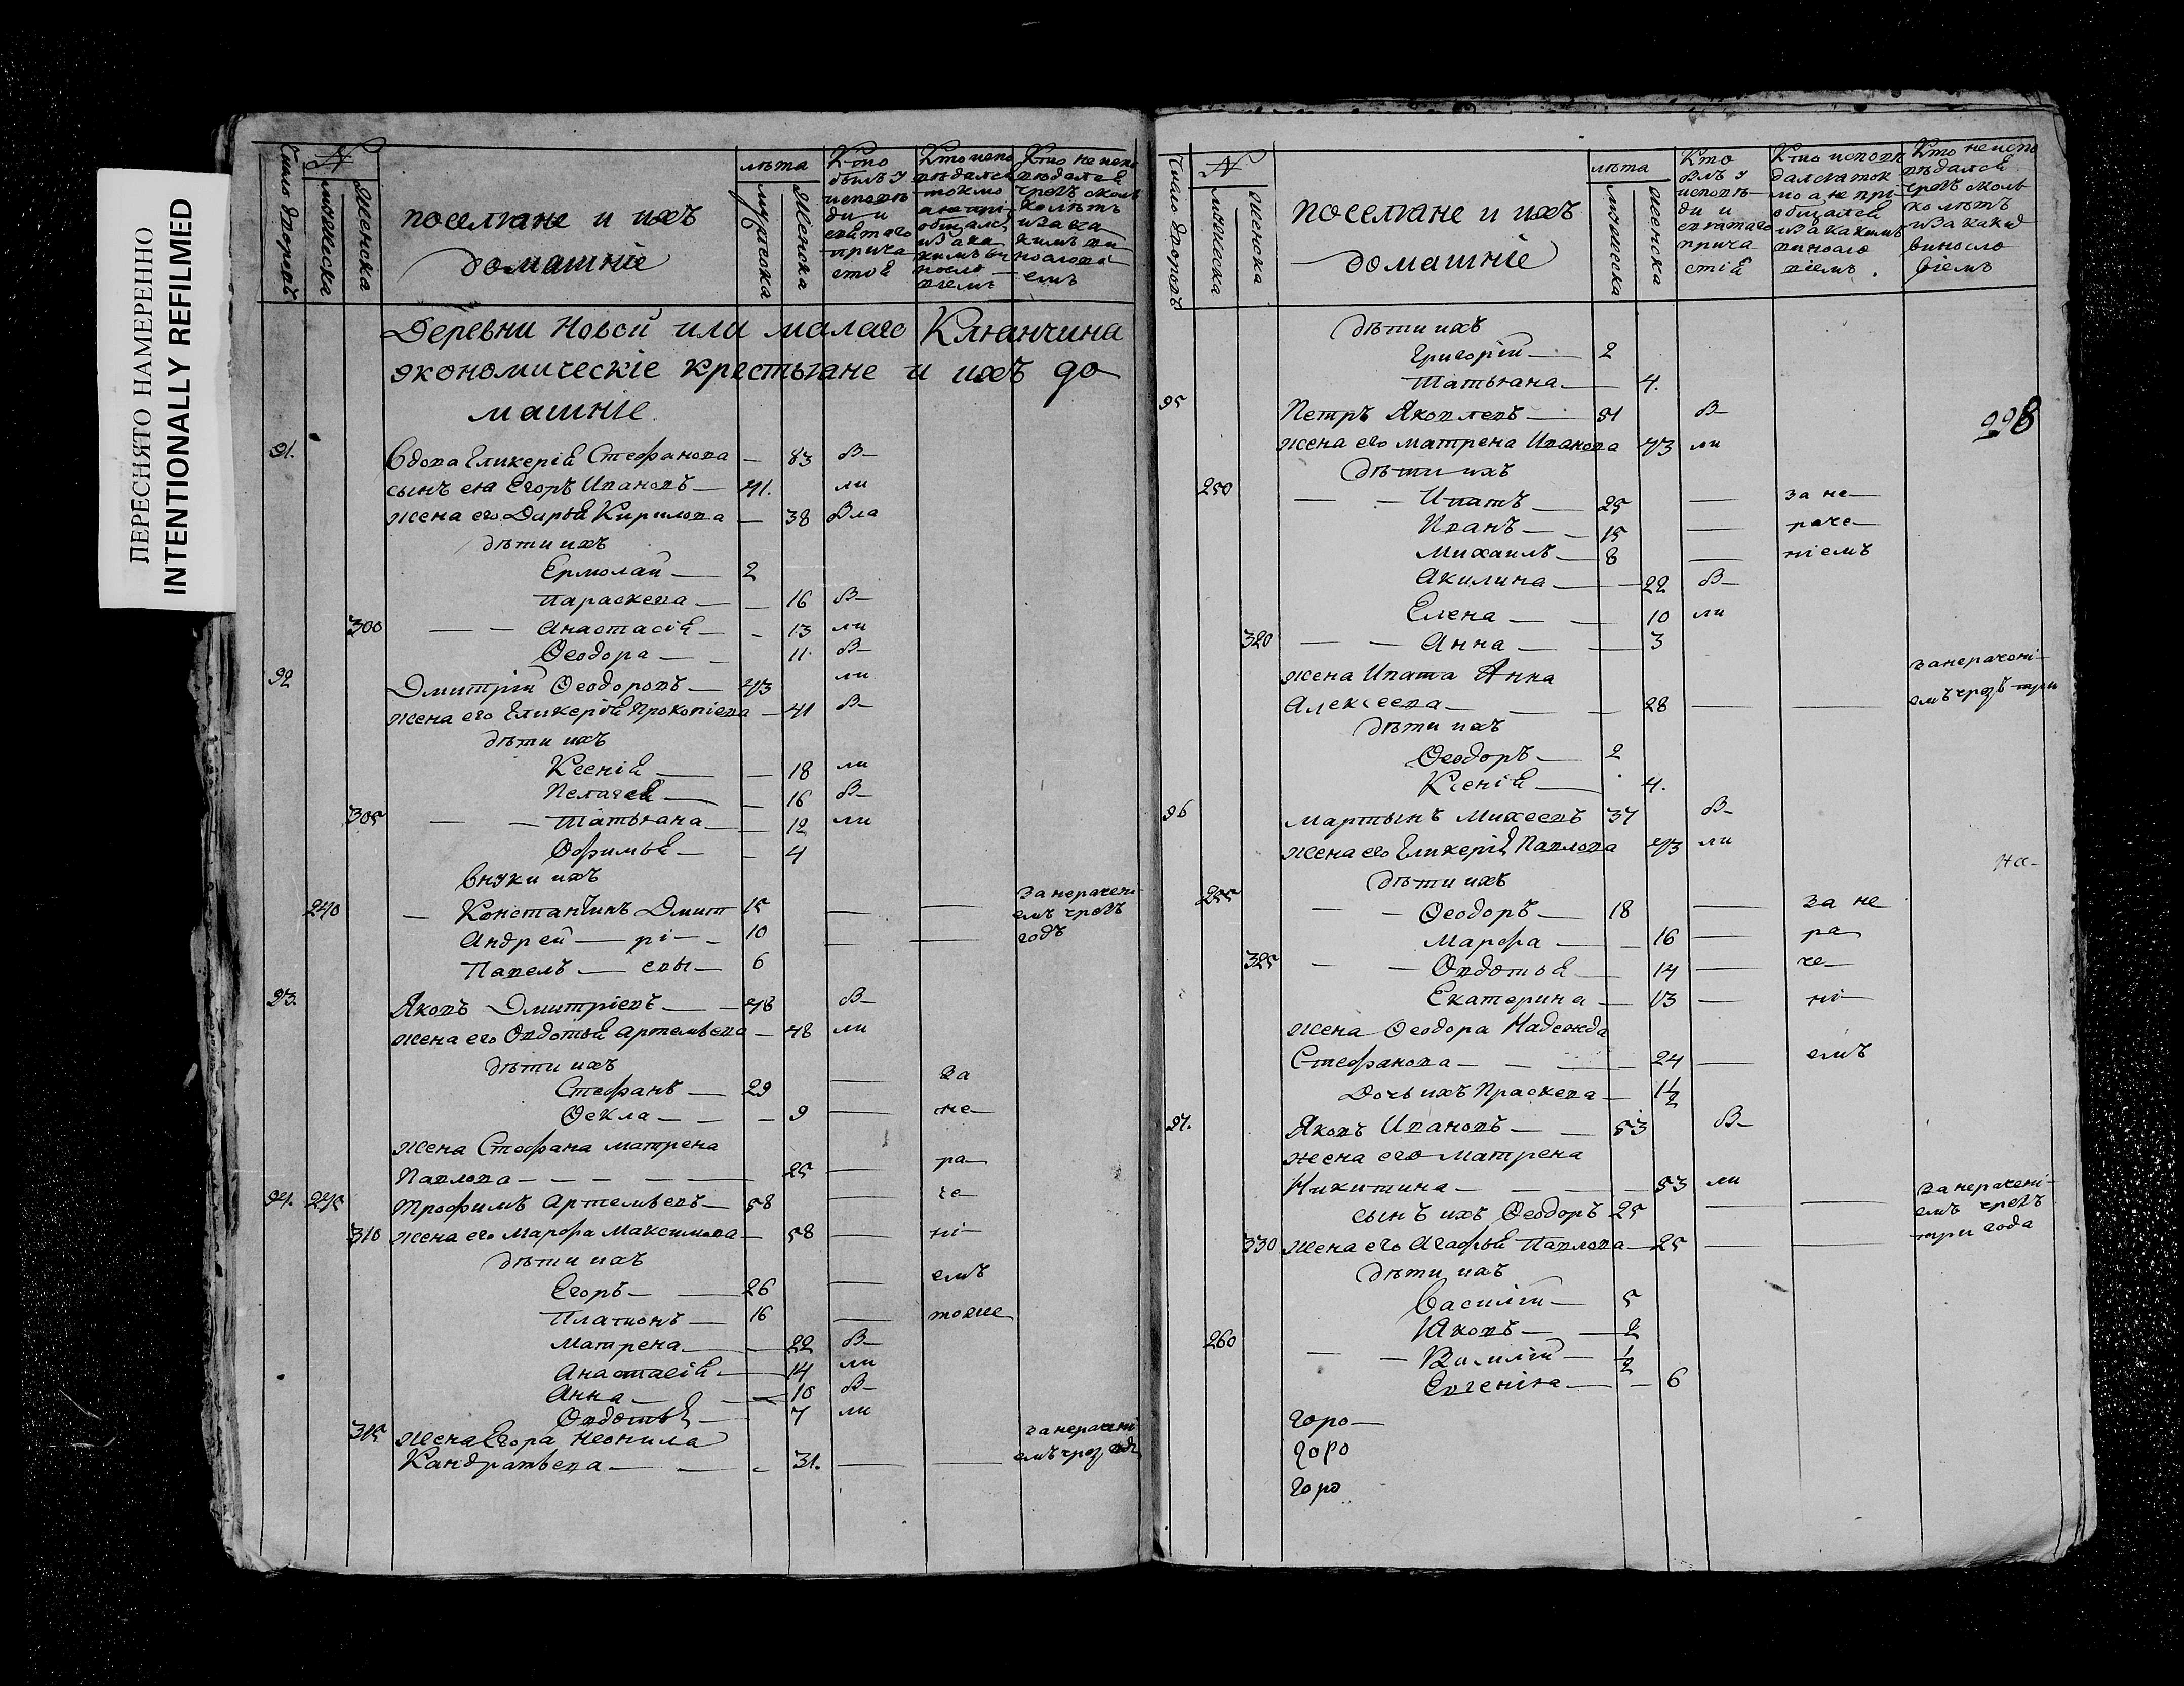 ПЕРЕСНЯТО НАМЕРЕННО
INTENTIONALLY REFILMED
Число дворовъ
№
мужеска
женска
поселяне и ихъ
домашніе
лѣта
мужеска
женска
Кто
былъ у
исповѣ
ди и
святаго
прича
стія
Кто испо
вѣдался
токмо
а не прі
общался
и за ка
кимъ ви
носло
віемъ
Кто не испо
вѣдался
чрезъ сколь
ко лѣтъ
и за ка
кимъ ви
нослові
емъ
Деревни Новой или малаго Клянчина
экономическіе крестьяне и ихъ до
машніе
91. Вдова Гликерія Стефанова — 83 В—
сынъ ея Егоръ Ивановъ — 41. ли
жена его Дарья Кирилова — 38 Вла
дѣти ихъ
Ермолай — 2
Параскева — 16 В—
300 — — Анастасія — 13 ли
Ѳеодора — 11 В—
92 Дмитрій Ѳеодоровъ — 43 ли
жена его Гликерія Прокопіева — 41 В—
дѣти ихъ
Ксенія — 18 ли
Пелагея — 16 В—
305 — — Татьяна — 12 ли
Офимья — 4
внуки ихъ
240 — Константинъ Дмит 15 — — За нерачені
Андрей — рі — 10 — — емъ чрезъ
годъ
Павелъ — евы — 6
93. Яковъ Дмитріевъ — 48 В—
жена его Овдотья Артемьева — 48 ли
дѣти ихъ
Стефанъ — 29 — За
Ѳекла — 9 — не—
жена Стефана Матрена
Павлова — 25 — ра—
94. 245 Трофимъ Артемьевъ — 58 — че—
310 жена его Марфа Максимова — 58 — ні—
дѣти ихъ
Егоръ — 26 — емъ
Платонъ — 16 — тоже
Матрена — 22 В—
Анастасія — 14 ли
Анна — 10 В—
Овдотья — 7 ли
315 Жена Егора Неонила
Кандратьева — 31. — — за нерачені
емъ чрез годъ
Число дворовъ
№
мужеска
женска
поселяне и ихъ
домашніе
лѣта
мужеска
женска
Кто
былъ у
исповѣ
ди и
святаго
прича
стія
Кто исповѣ
дался ток
мо а не прі
общался
и за какимъ
виносло
віемъ.
Кто не испо
вѣдался
чрезъ сколь
ко лѣтъ
и за каки
виносло
віемъ
дѣти ихъ
Григорій — 2
Татьяна — 4.
95 Петръ Яковлевъ — 51 В—
998
жена его Матрена Иванова 43 ли
дѣти ихъ
250 — — Ипатъ — 25 — за не—
Иванъ — 15 — раче—
Михаилъ — 8 — ніемъ
Акилина — 22 В—
Елена — 10 ли
320 — — Анна — 3
жена Ипата Анна за нерачені—
Алексеева — 28 — — емъ чрезъ три
дѣти ихъ
Ѳеодоръ — 2
Ксенія — 4.
96 Мартынъ Михеевъ 37 В—
жена его Гликерія Павлова 43 ли
На—
дѣти ихъ
255 — — Ѳеодоръ — 18 — за не
Марфа — 16 — ра
325 — — Овдотья — 14 — че—
Екатерина — 13 — ні—
жена Ѳеодора Надежда
Стефанова — 24 — емъ
Дочь ихъ Праскева — 1½
97. Яковъ Ивановъ — 53 В—
жена его Матрена
Никитина — 53 ли
сынъ ихъ Ѳеодоръ 25 — — За нерачені—
емъ чрезъ
330 жена его Агафья Павлова — 25 — — три года
дѣти ихъ
Василій — 5
260 Яковъ — 2
— — Василій — ½
Евгенія — 6
горо—
горо
горо